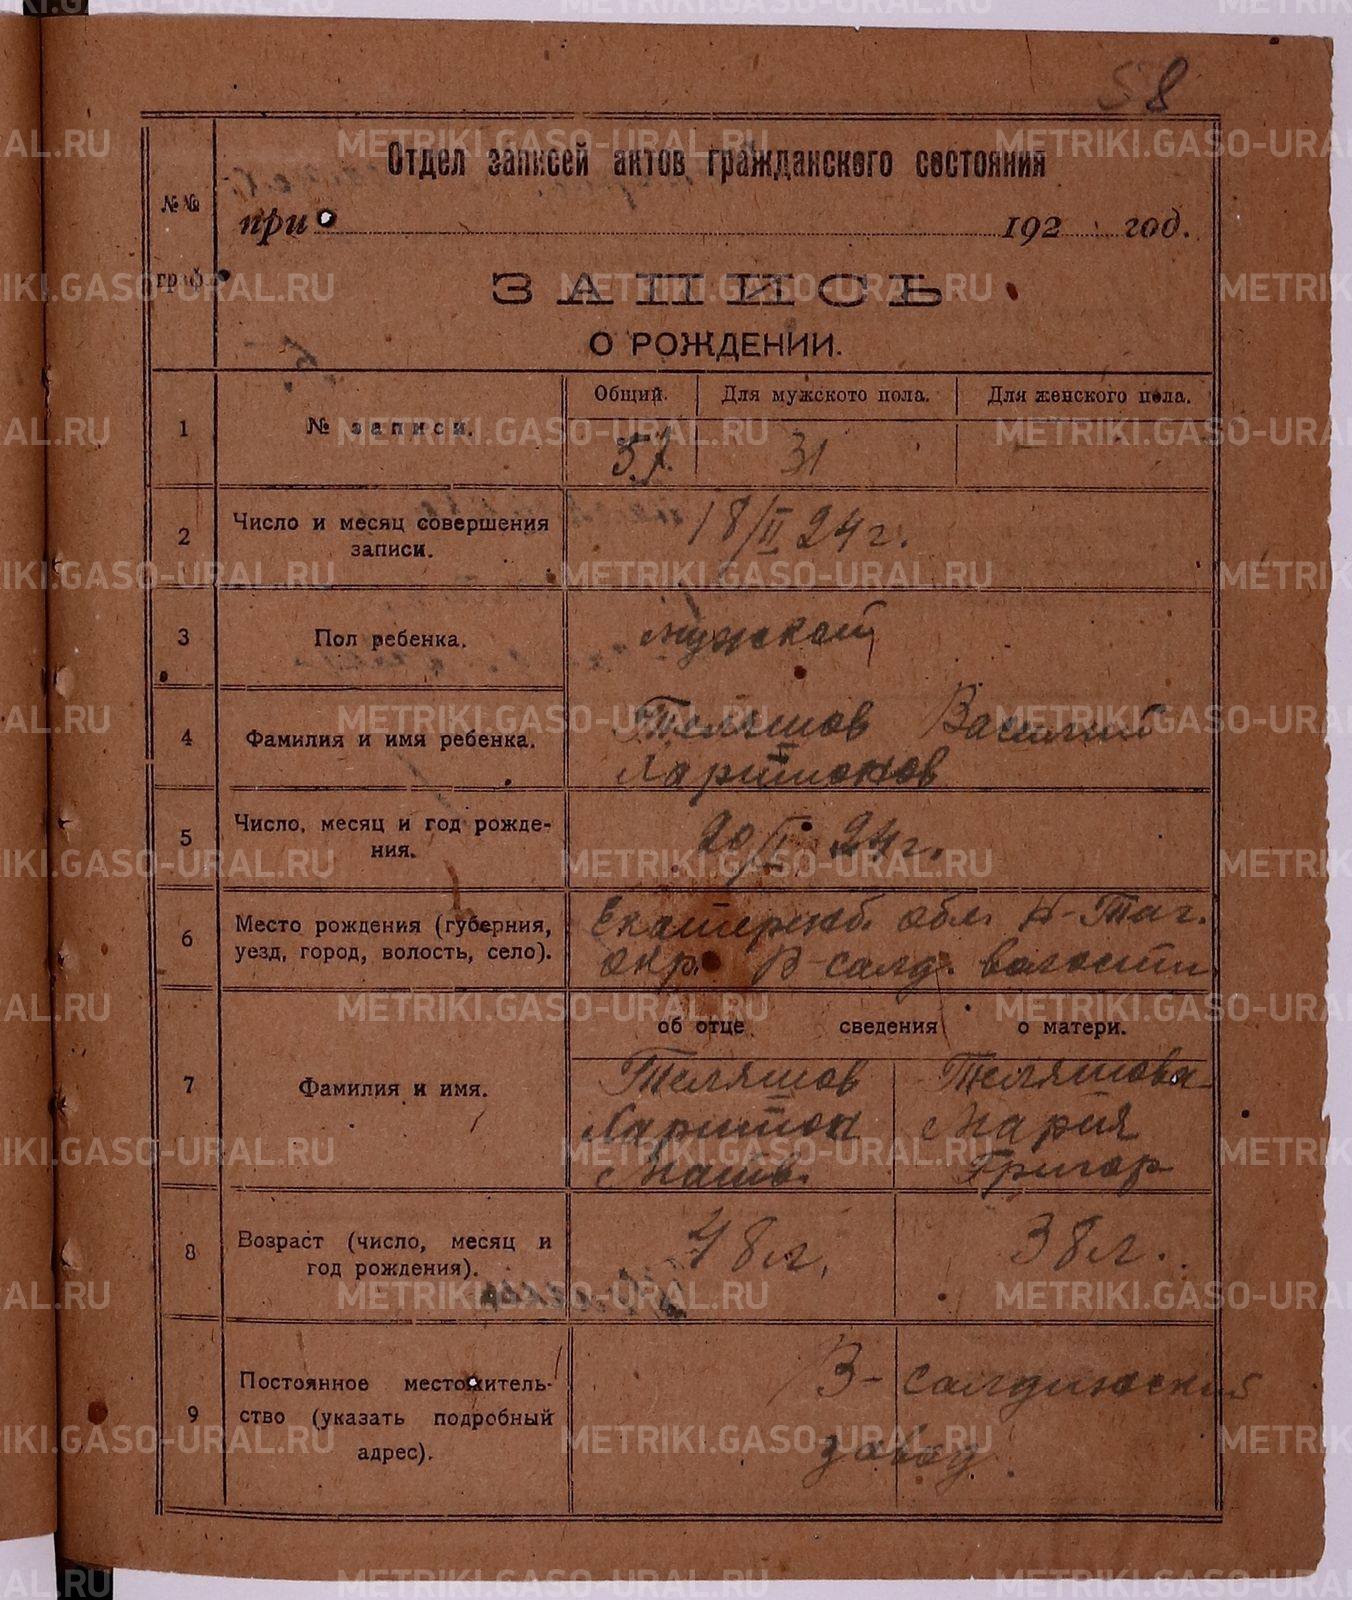 58
Отдел записей актов гражданского состояния
№№ граф.
при 192 год.
ЗАПИСЬ
О РОЖДЕНИИ.
1 № записи. Общий. Для мужского пола. Для женского пола.
57. 31 —
2 Число и месяц совершения записи. 18/II 24 г.
3 Пол ребенка. Мужской
4 Фамилия и имя ребенка. Теляшов Василий
Харитонов
5 Число, месяц и год рожде-
ния. 20/I 24 г.
6 Место рождения (губерния, Екатеринб. обл. Н-Таг.
уезд, город, волость, село). окр. В-салд. волости
об отце сведения о матери.
7 Фамилия и имя. Теляшов Теляшова
Харитон Мария
Матв. Григор
8 Возраст (число, месяц и
год рождения). 48 л. 38 л.
9 Постоянное местожитель-
ство (указать подробный
адрес). В-салдинский
завод.
METRIKI.GASO-URAL.RU